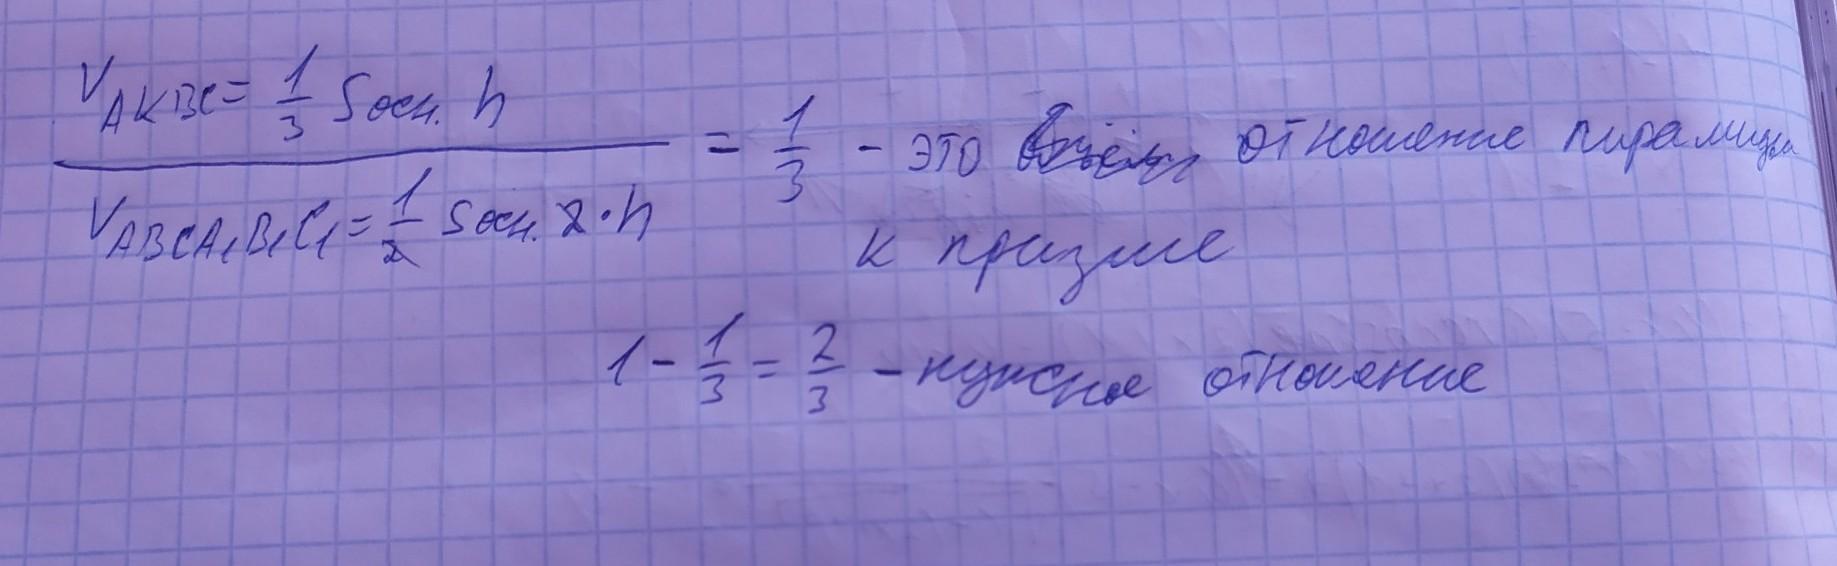 V AKBC = 1/3 S осн. h
V ABCA₁B₁C₁ = 1/2 S осн. 2 · h
= 1/3 - это отношение пирамиды
к призме
1 - 1/3 = 2/3 - нужное отношение